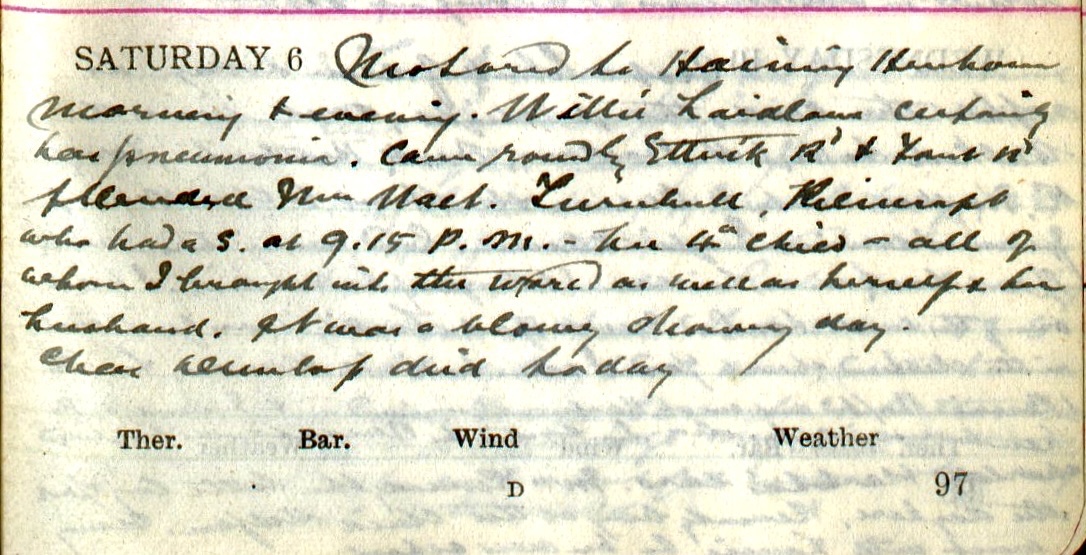 SATURDAY 6 Motored to Haining Henhouse
morning & evening. Willie Laidlaw certainly
has pneumonia. Came round by Ettrick Rd & Rd
Attended Mrs Walt. Turnbull,
who had a S. at 9.15 P.M. - her 4th child - all of
whom I brought into the world as well as herself & her
husband. It was a blowy showery day.
Chas Dunlop died today
Ther. Bar. Wind Weather
D 97